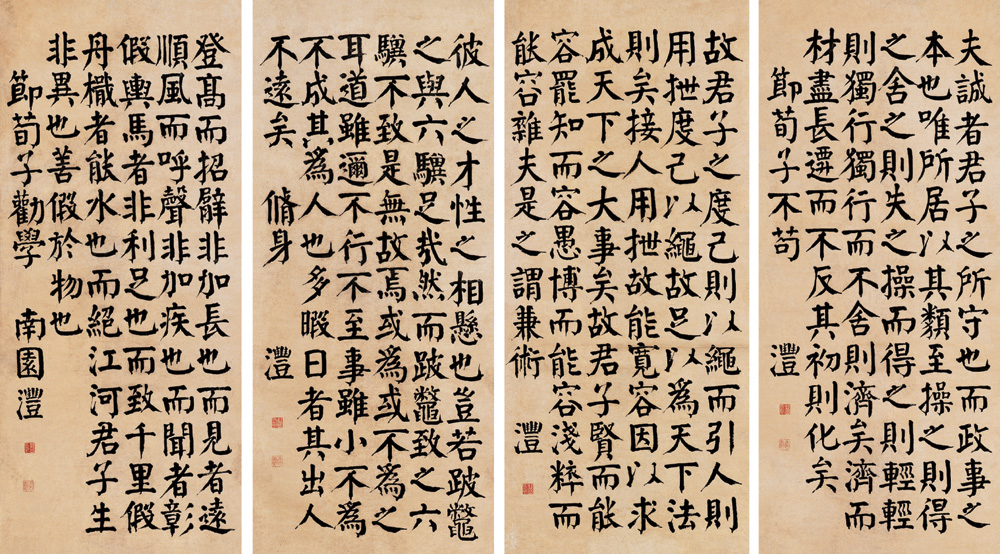 夫誠者君子之所守也而政事之
本也唯所居以其類至操之則得
之舍之則失之操而得之則輕輕
則獨行獨行而不舍則濟矣濟而
材盡長遷而不反其初則化矣
節荀子不苟 灃
故君子之度己則以繩而引人則
用抴度己以繩故足以為天下法
則矣接人用抴故能寬容因以求
成天下之大事矣故君子賢而能
容罷知而容愚博而能容淺粹而
能容雜夫是之謂兼術 灃
彼人之才性之相懸也豈若跛鼈
之與六驥足哉然而跛鼈致之六
驥不致是無故焉或為或不為之
耳道雖邇不行不至事雖小不為
不成其為人也多暇日者其出人
不遠矣 脩身 灃
登髙而招臂非加長也而見者遠
順風而呼聲非加疾也而聞者彰
假輿馬者非利足也而致千里假
舟檝者能水也而絕江河君子生
非異也善假於物也
節荀子勸學 南園灃